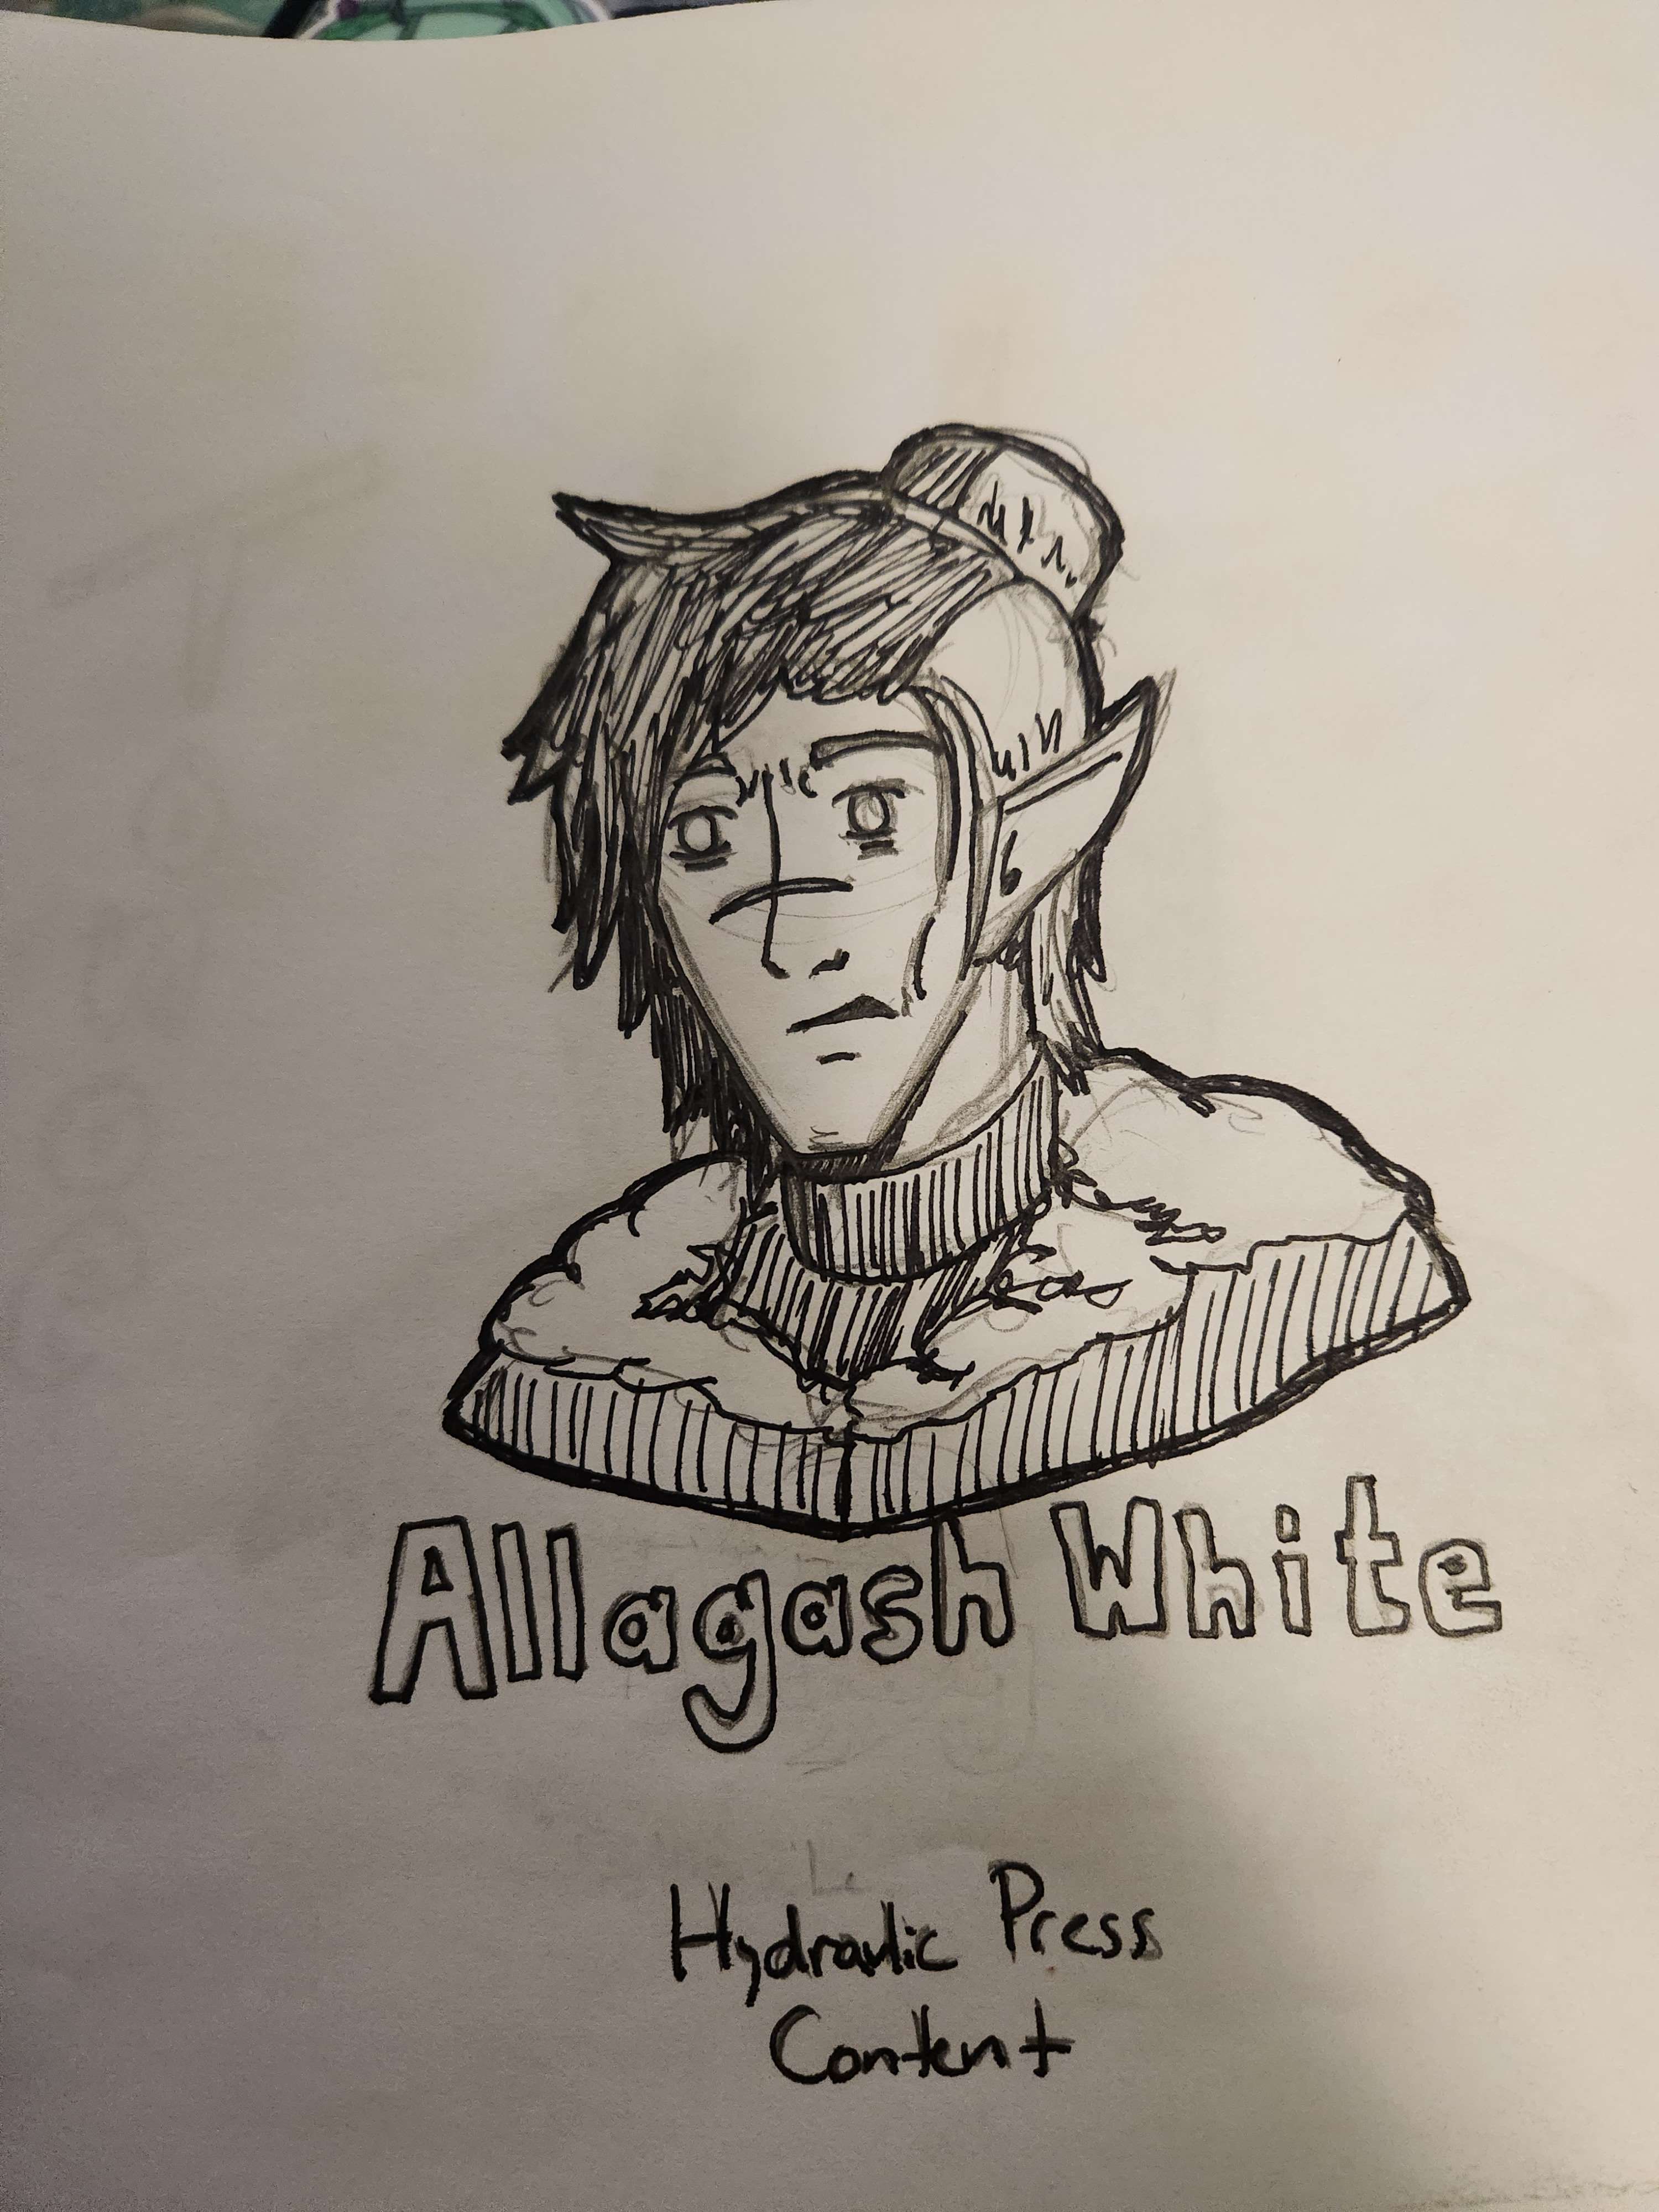 Allagash White
Hydraulic Press
Content